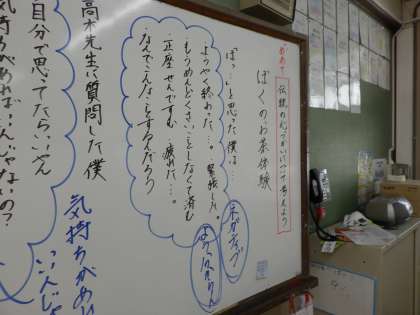 めあて 伝統の心づかいについて考えよう
ぼくのお茶体験
ぼっ…と思った僕は…
ようやく終わった…。緊張した。
・もうめんどくさいことしなくて済む
・正座せんですむ 疲れた…。
・なんでこんなことするんだろう
ネガティブ
高木先生に質問した僕
自分で思ってたらいいやん
気持ちがあれば…いいんじゃないの?
気持ちがあれ
いいんじ